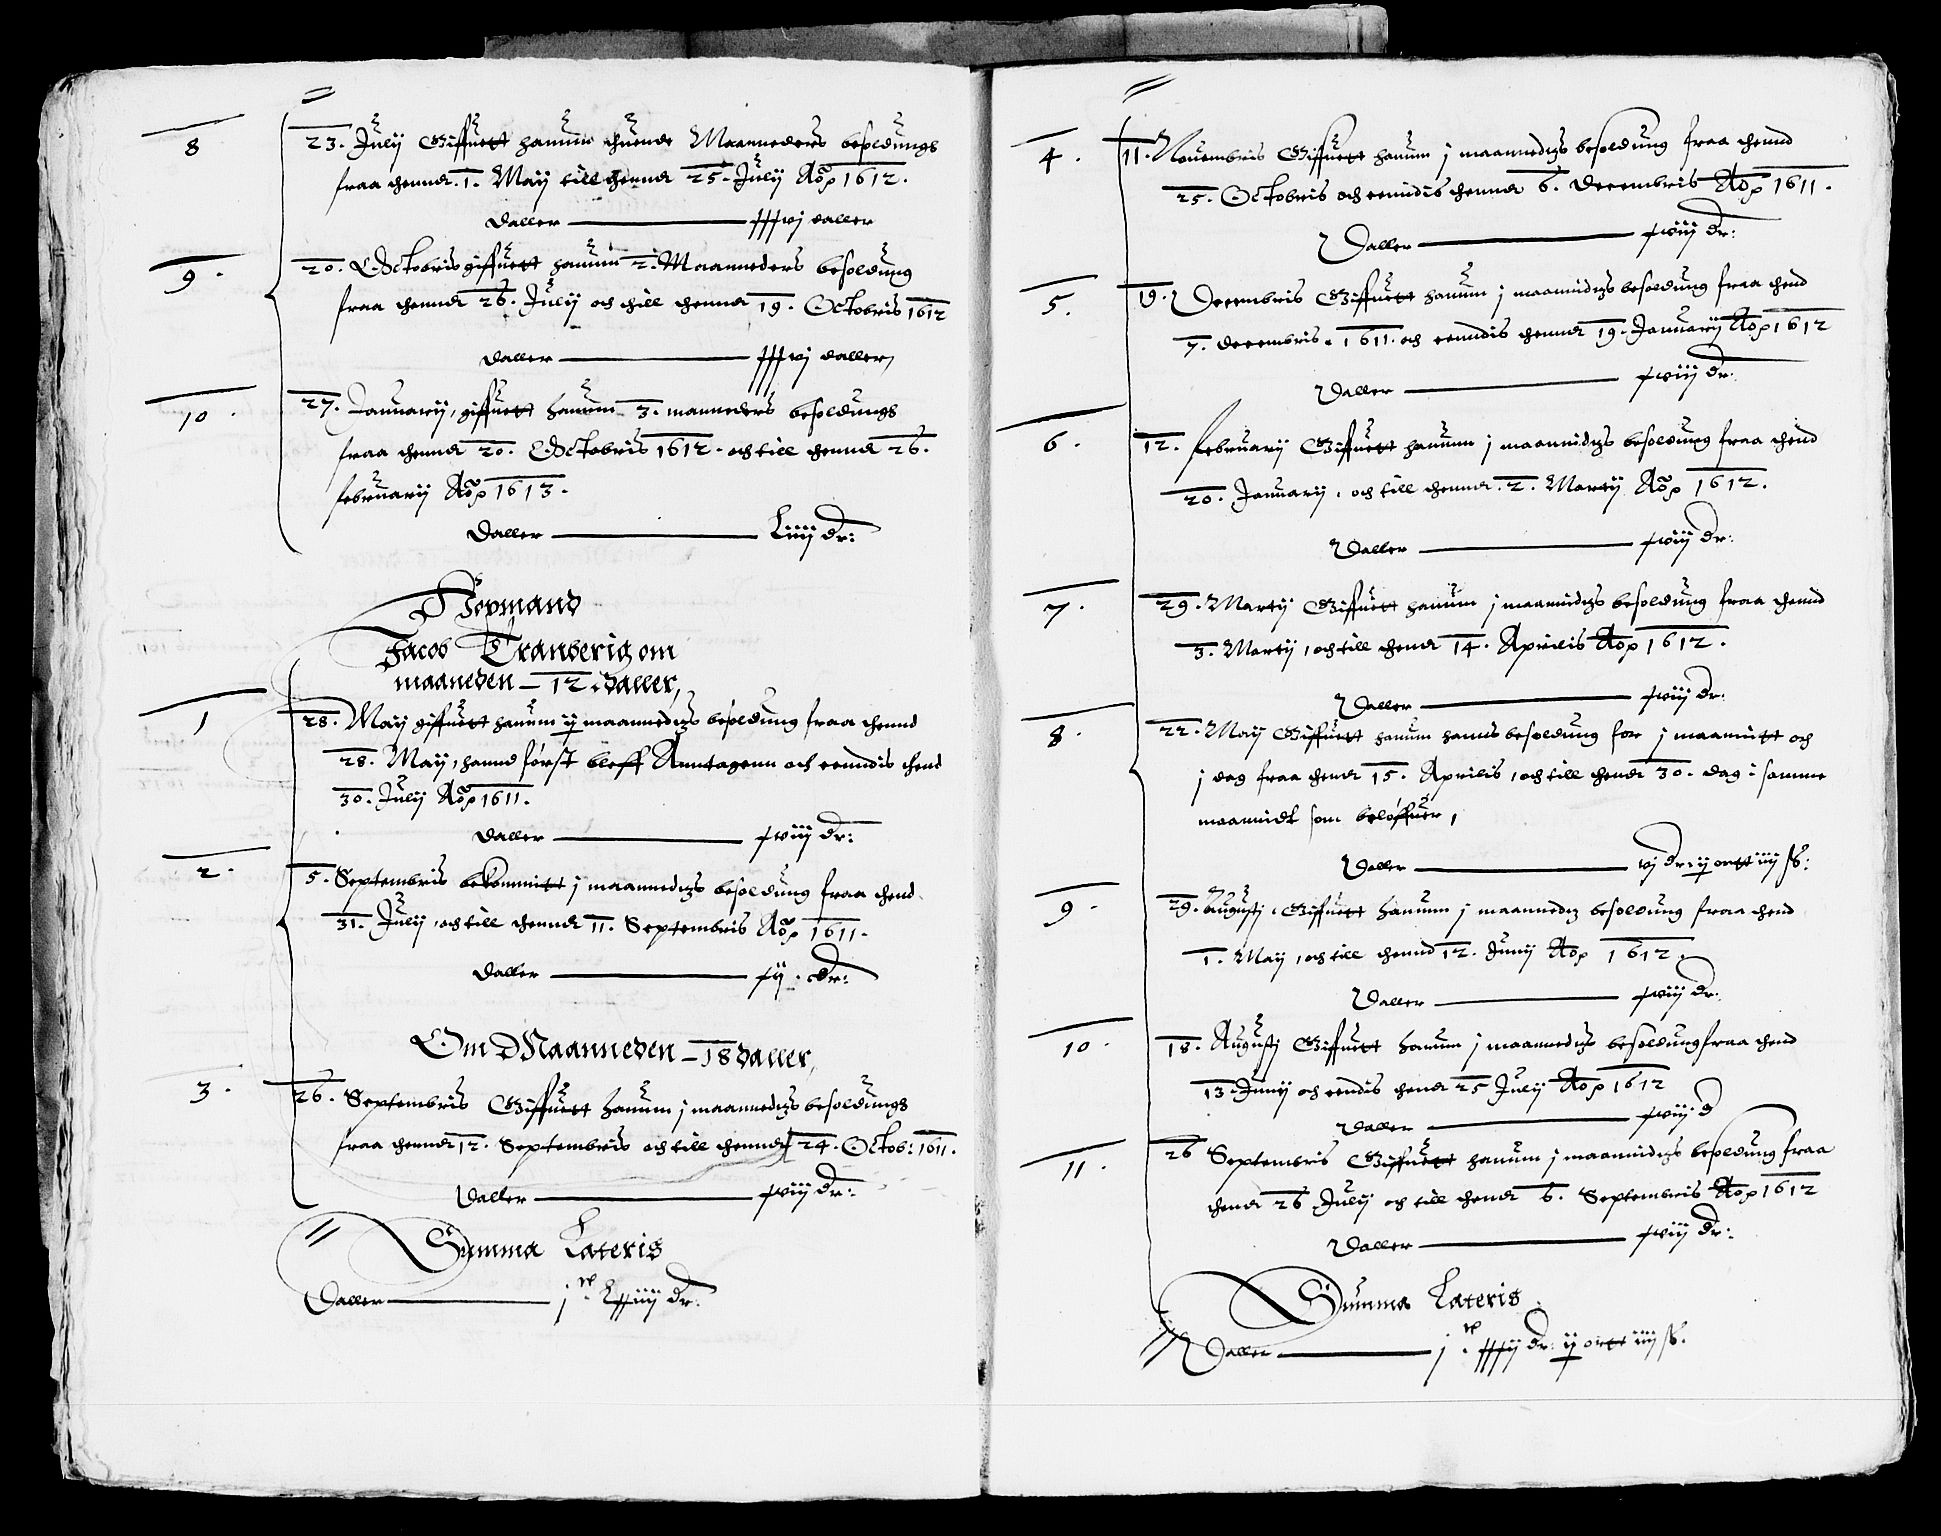 8 23. Julij Giffuett hanum thuende Maanneders besoldings
fraa thennd. 1. Maij till thennd 25. Julij Aõp 1612.
Daller xxxvj daller
9. 20. Octobris giffuett hanum 2. Maanneders besolding
fraa thennd 26. Julij och thill thennd 19. Octobris 1612
Daller xxxvj daller
10. 27. Januarij, giffuett hanum 3. manneders besoldings
fraa thennd 20. Octobris 1612. och till thennd 26.
februarij Aõp 1613.
Daller Liiij Dr:
Jacob Tranberig om
maaneden 12. daller,
1 28. Maij giffuett hanum ij maannedtzs besolding fraa thennd
28. Maij, hannd først bleff Anntagenn och enndis thend
30. Julij Aõp 1611.
Daller xviij Dr:
2. 5. Septembris bekommitt j maannedtzs besolding fraa thend
31. Julij, och till thennd 11. Septembris Aõp 1611.
Daller xij. Dr:
Om Maanneden 18 daller,
3. 26. Septembris Giffuett hanum j maannedtzs besoldings
fraa thennd 12. Septembris och till thennd 24. Octob: 1611.
Daller xviij Dr:
Summa Lateris
Daller jc. Lxxiiij Dr:
4. 11. Nouembris Giffuett hanum j maannedtzs besolding fraa thennd
25. Octobris och enndis thennd 6. Decembris Aop 1611.
Daller xviij Dr:
5. 19. Decembris Giffuett hanum j maannidtzs besolding fraa thend
7. Decembris. 1611. och enndis thennd 19. Januarij Aop 1612
Daller xviij Dr:
6. 12. februarij Giffuett hanum j maannidtzs besolding fraa thend
20. Januarij, och till thennd. 2. Martij Aõp 1612.
Daller xviij Dr:
7. 29. Martij Giffuett hanum j maannidtzs besolding fraa thennd
3. Martij, och till thend 14. Aprilis Aop 1612.
Daller xviij Dr:
8. 22. Maij Giffuett hanum hanns besolding for j maanitt och
j dag fraa thend 15. Aprilis, och till thend 30. dag i samme
maannidt som beløffuer,
Daller vj Dr: ij ortt iiij ß:
9. 29. Augustj. Giffuett hanum j maannedtz besolding fraa thend
1. Maij, och till thennd 12. Junij Aop 1612.
Daller xviij Dr:
10. 18. Augustj Giffuett hanum j maannedtzs besolding fraa thend
13. Junij och endis thend 25 Julij Aop 1612
Daller xviij. D
11. 26 Septembris Giffuett hanum j maannidtzs besolding fraa
thend 26 Julij och till thend 6. Septembris Aop 1612
Daller xviij Dr:
Summa Lateris.
Daller jc. xxxij Dr: ij ortt iiij ß.